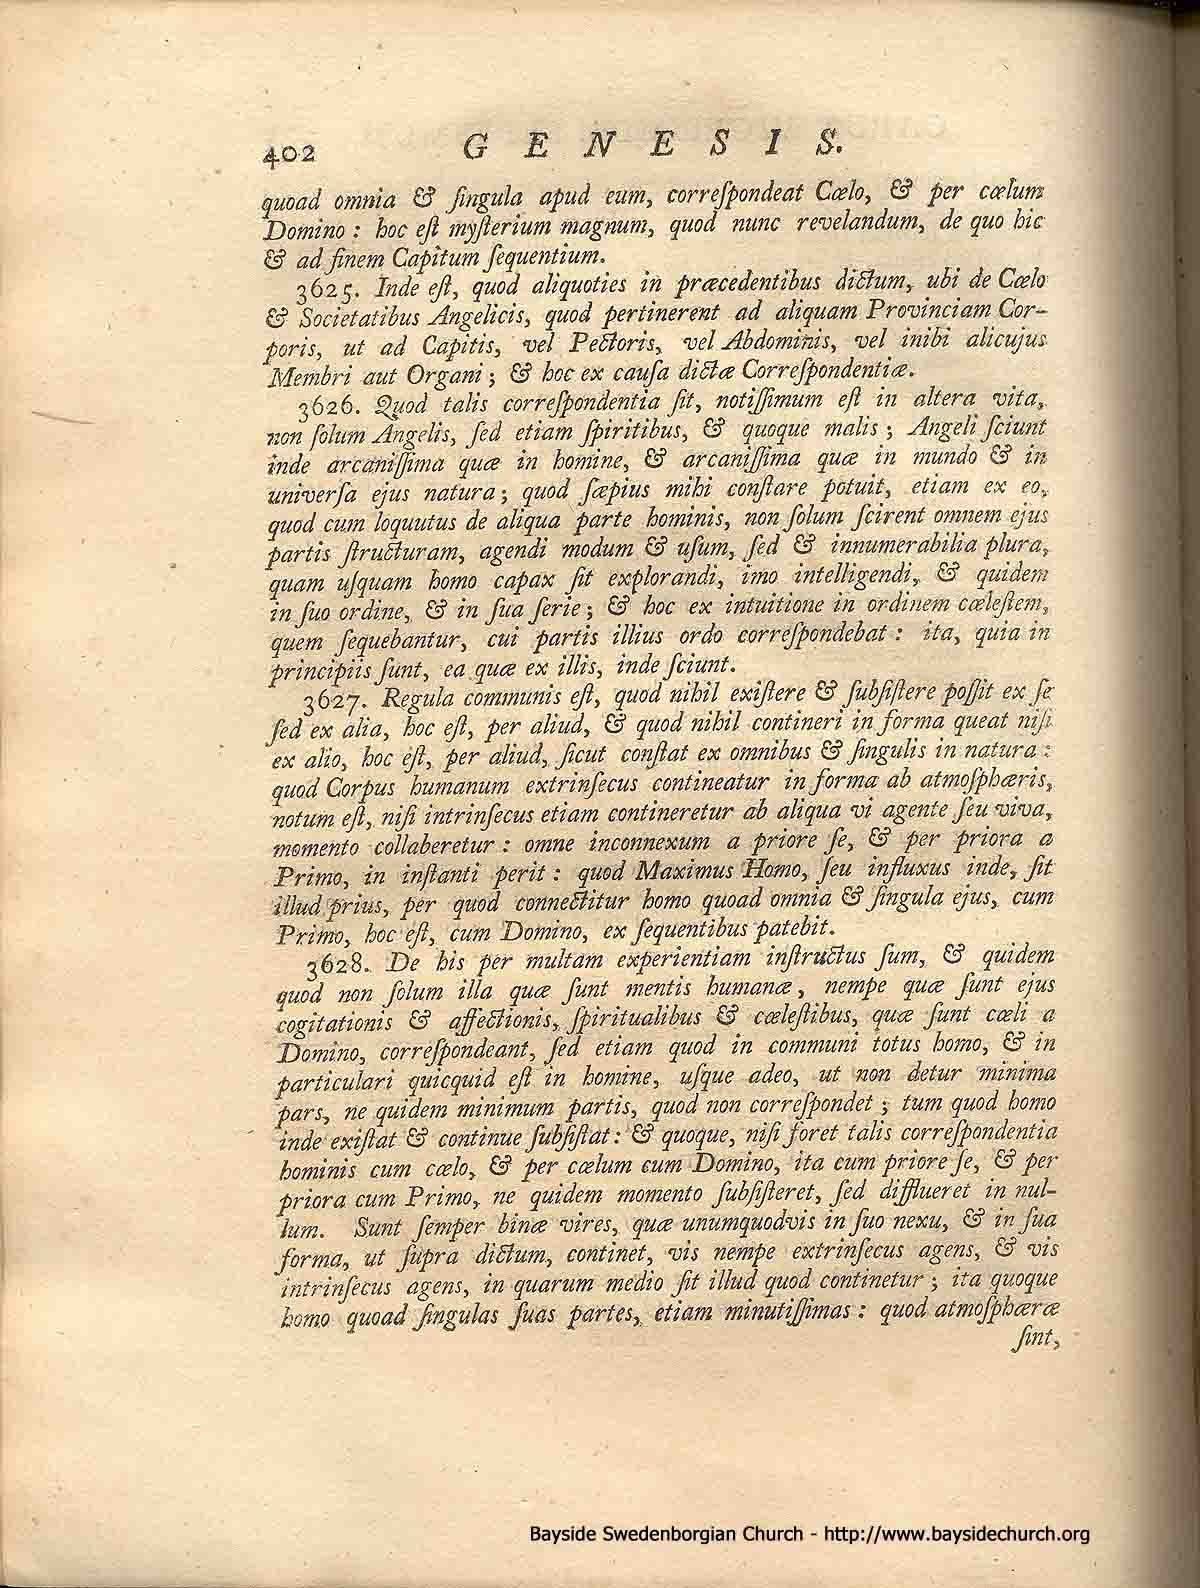 402 GENESIS.
quoad omnia & ſingula apud eum, correſpondeat Cœlo, & per cœlum
Domino : hoc eſt myſterium magnum, quod nunc revelandum, de quo hic
& ad finem Capitum ſequentium.
3625. Inde eſt, quod aliquoties in præcedentibus dictum, ubi de Cœlo
& Societatibus Angelicis, quod pertinerent ad aliquam Provinciam Cor-
poris, ut ad Capitis, vel Pectoris, vel Abdominis, vel inibi alicujus
Membri aut Organi ; & hoc ex cauſa dictæ Correſpondentiæ.
3626. Quod talis correſpondentia ſit, notiſſimum eſt in altera vita,
non ſolum Angelis, ſed etiam ſpiritibus, & quoque malis ; Angeli ſciunt
inde arcaniſſima quæ in homine, & arcaniſſima quæ in mundo & in
univerſa ejus natura ; quod ſæpius mihi conſtare potuit, etiam ex eo,
quod cum loquutus de aliqua parte hominis, non ſolum ſcirent omnem ejus
partis ſtructuram, agendi modum & uſum, ſed & innumerabilia plura,
quam uſquam homo capax ſit explorandi, imo intelligendi, & quidem
in ſuo ordine, & in ſua ſerie ; & hoc ex intuitione in ordinem cæleſtem,
quem ſequebantur, cui partis illius ordo correſpondebat : ita, quia in
principiis ſunt, ea quæ ex illis, inde ſciunt.
3627. Regula communis eſt, quod nihil exiſtere & ſubſiſtere poſſit ex ſe
ſed ex alia, hoc eſt, per aliud, & quod nihil contineri in forma queat niſi
ex alio, hoc eſt, per aliud, ſicut conſtat ex omnibus & ſingulis in natura :
quod Corpus humanum extrinſecus contineatur in forma ab atmoſphæris,
notum eſt, niſi intrinſecus etiam contineretur ab aliqua vi agente ſeu viva,
momento collaberetur : omne inconnexum a priore ſe, & per priora a
Primo, in inſtanti perit : quod Maximus Homo, ſeu influxus inde, ſit
illud prius, per quod connectitur homo quoad omnia & ſingula ejus, cum
Primo, hoc eſt, cum Domino, ex ſequentibus patebit.
3628. De his per multam experientiam inſtructus ſum, & quidem
quod non ſolum illa quæ ſunt mentis humanæ, nempe quæ ſunt ejus
cogitationis & affectionis, ſpiritualibus & cæleſtibus, quæ ſunt cæli a
Domino, correſpondeant, ſed etiam quod in communi totus homo, & in
particulari quicquid eſt in homine, uſque adeo, ut non detur minima
pars, ne quidem minimum partis, quod non correſpondet ; tum quod homo
inde exiſtat & continue ſubſiſtat : & quoque, niſi foret talis correſpondentia
hominis cum cœlo, & per cœlum cum Domino, ita cum priore ſe, & per
priora cum Primo, ne quidem momento ſubſiſteret, ſed difflueret in nul-
lum. Sunt ſemper binæ vires, quæ unumquodvis in ſuo nexu, & in ſua
forma, ut ſupra dictum, continet, vis nempe extrinſecus agens, & vis
intrinſecus agens, in quarum medio ſit illud quod continetur ; ita quoque
homo quoad ſingulas ſuas partes, etiam minutiſſimas : quod atmoſphæræ
ſint,
Bayside Swedenborgian Church - http://www.baysidechurch.org